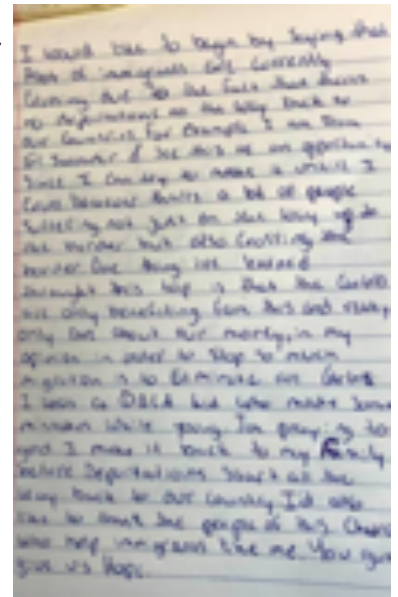 I would like to begin by saying that
Most of immigrants are currently
coming due to the fact that theres
no deportations all the way back to
our countries for example I am from
El Salvador I see this as an opportunity
since I can try to make it while I
can theres a lot of people
suffering not just on the way up to
the border but also crossing the
border One thing ive learned
throught this trip is that the Cartels
are only benefiting from this and
only care about their money, in my
opinion in order to stop so much
migration is to Eliminate the Cartels
I was a DACA but who made some
mistakes while young I'm praying to
god I make it back to my Family
before Deportations start all the
way back to our country I'd also
like to thank the people of this Church
who help immigrants like me You guys
give us Hope